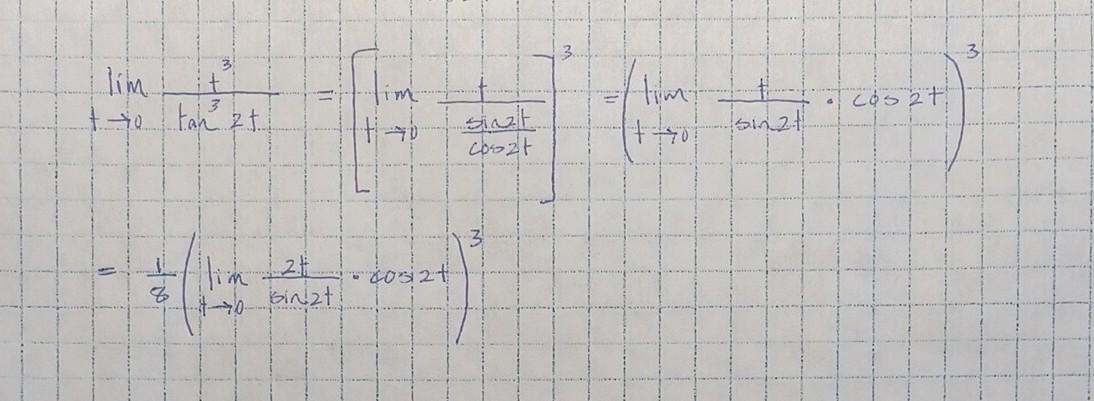 lim t→0 t³ / tan³ 2t = [lim t→0 t / (sin2t / cos2t)]³ = (lim t→0 t / sin2t · cos2t)³
= 1/8 (lim t→0 2t / sin2t · cos2t)³